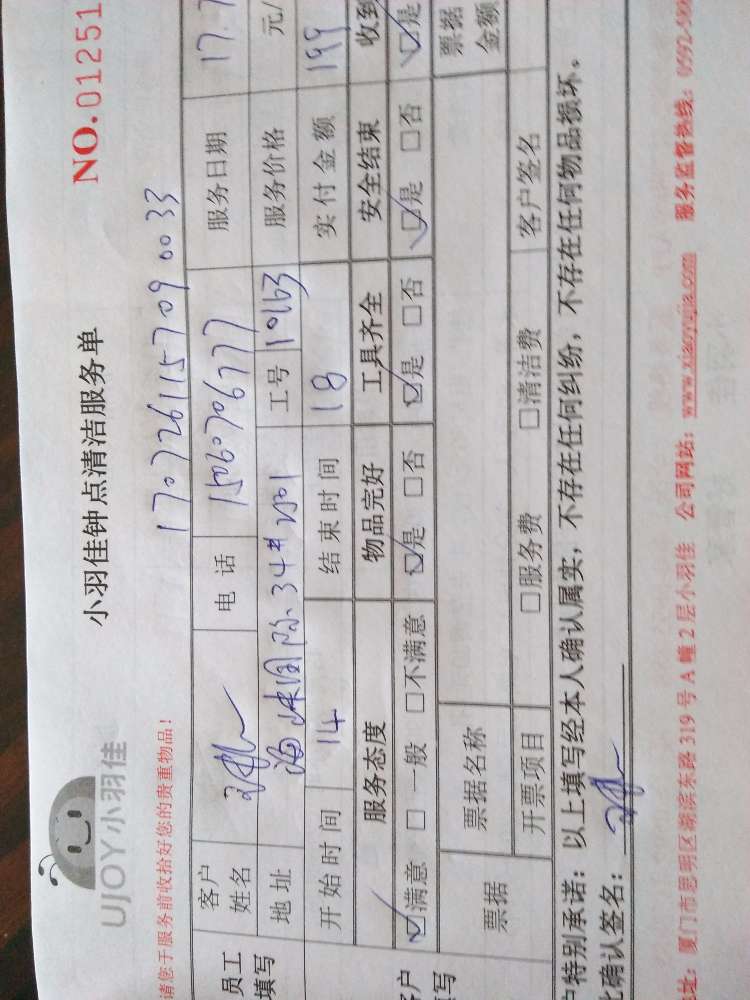 UJOY小羽佳
小羽佳钟点清洁服务单
NO.01251
请您于服务前收拾好您的贵重物品！
170726115709 0033
员工
填写
客户
姓名
电 话
15060706777
服务日期
17.7
地 址
海峡国际34# 2501
工号
10163
服务价格
元/
开 始 时 间
14
结 束 时 间
18
实 付 金 额
199
服务态度
物品完好
工具齐全
安全结束
收到
☑满意 □一般 □不满意
☑是 □否
☑是 □否
☑是 □否
☑是
票据
票据名称
票据
金额
开票项目
□服务费
□清洁费
客户签名
特别承诺：以上填写经本人确认属实，不存在任何纠纷，不存在任何物品损坏。
确认签名：
址：厦门市思明区湖滨东路 319 号 A 幢 2 层小羽佳 公司网站：www.xiaoyujia.com 服务监督热线：0592-500